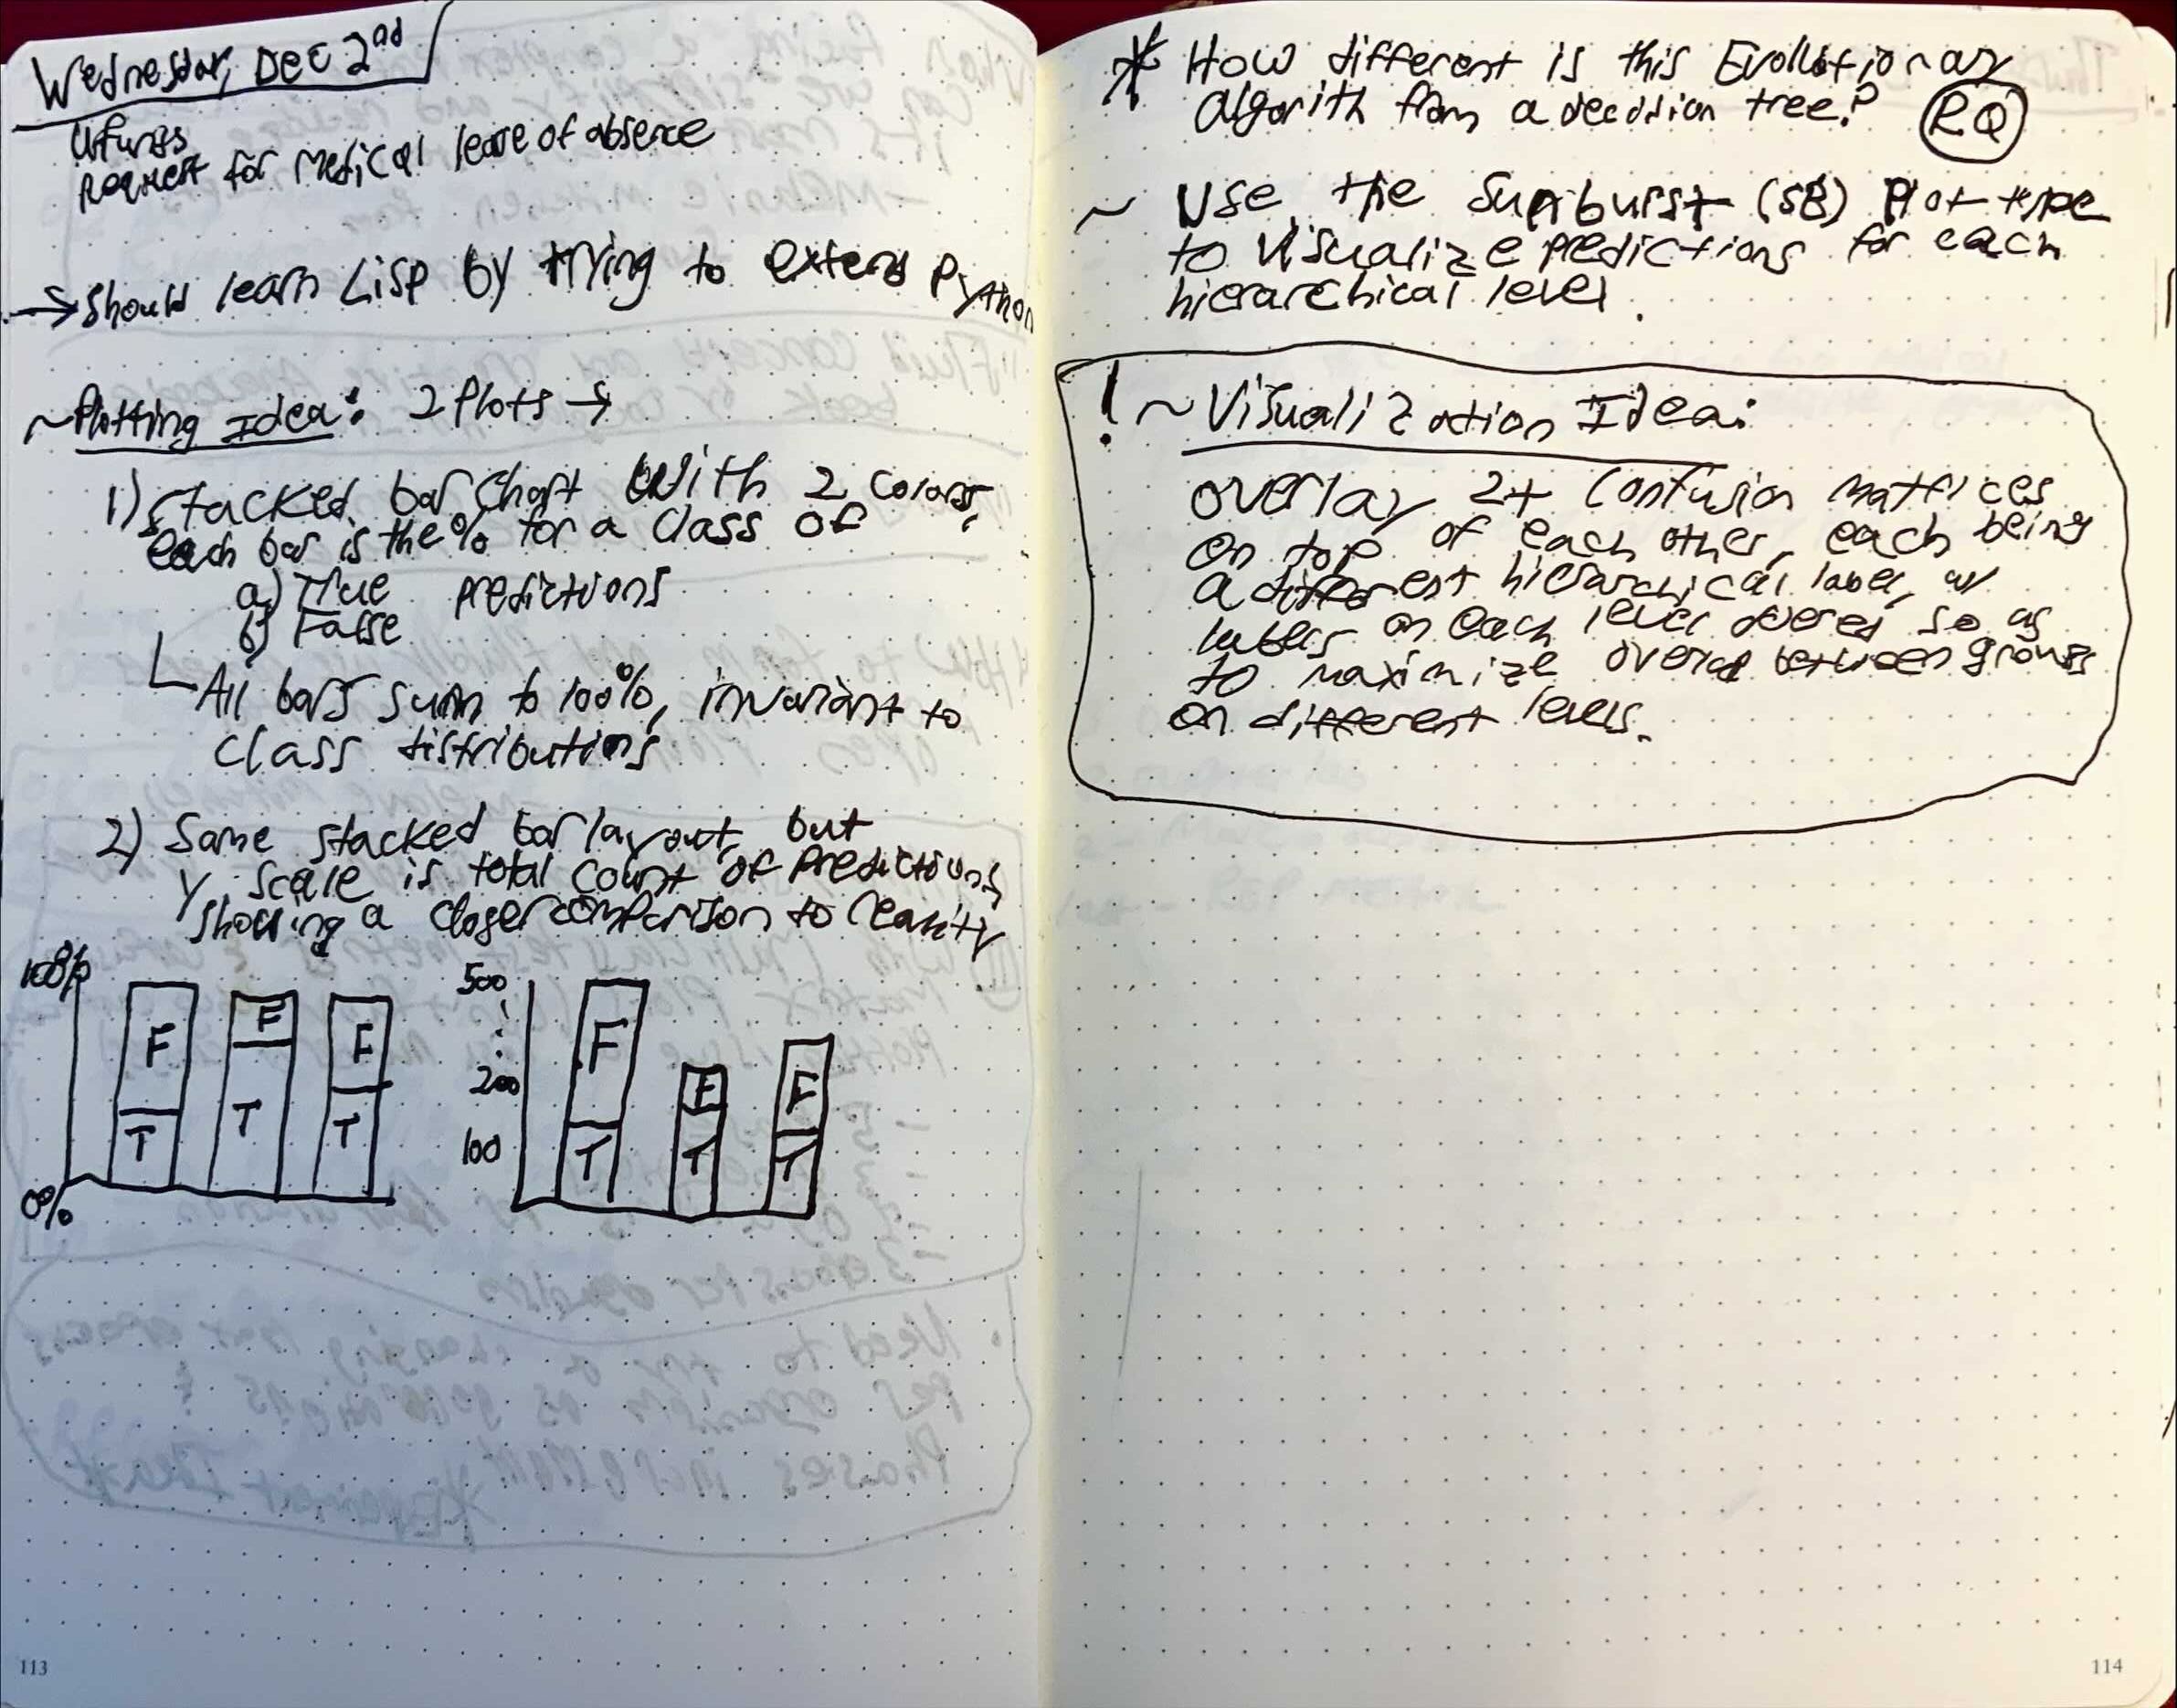 Wednesday, Dec 2nd
Request for Medical leave of absence
→ Should learn Lisp by trying to extend Python
~ Plotting Idea: 2 Plots →
1) Stacked bar chart with 2 colors,
each bar is the % for a class of
a) True predictions
b) False
All bars sum to 100%, invariant to
class distributions
2) Same stacked bar layout, but
y scale is total count of predictions,
showing a closer comparison to reality
100%
F
F
F
T
T
T
0%
500
200
100
F
F
F
T
T
T
113
* How different is this Evolutionary
algorith from a decision tree? RQ
~ Use the Sunburst (SB) Plot type
to visualize predictions for each
hierarchical level.
! ~ Visualization Idea:
overlay 2+ confusion matrices
on top of each other, each being
a different hierarchical label, w/
labels on each level ordered so as
to maximize overlap between groups
on different levels.
114